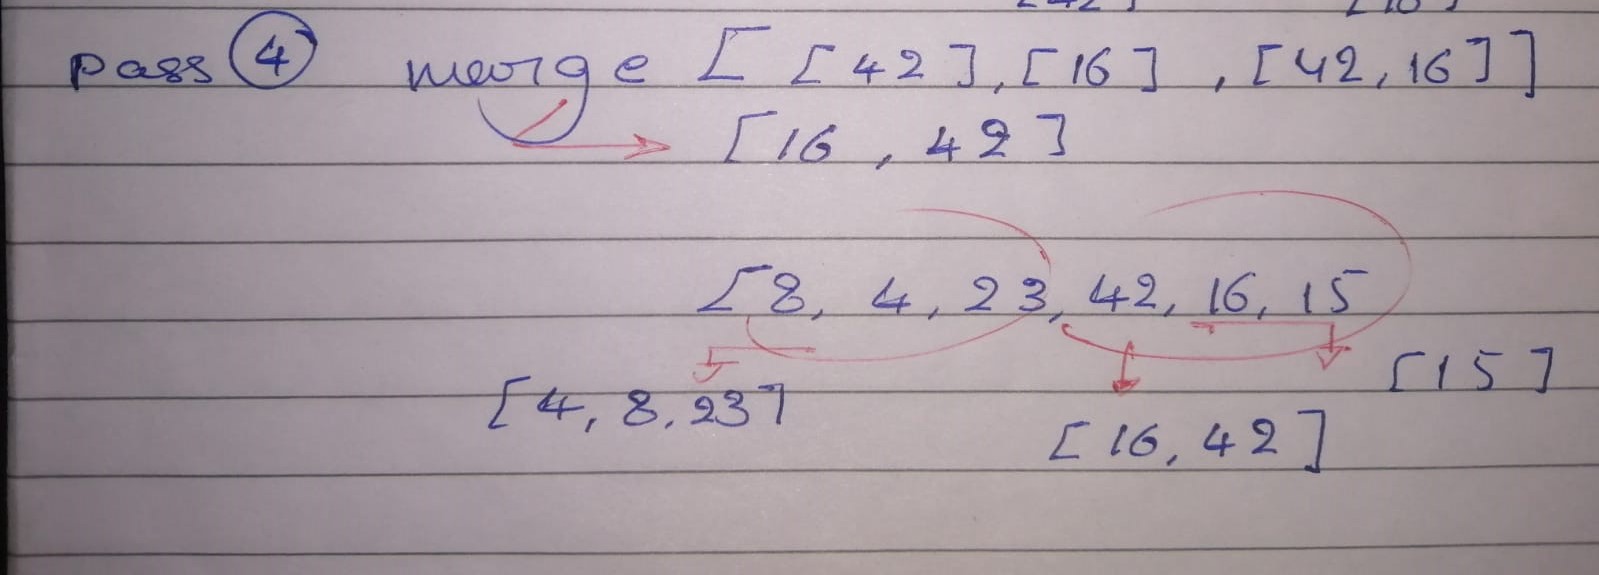 pass 4 merge [ [ 42 ], [ 16 ] , [ 42, 16 ] ]
[ 16 , 42 ]
[ 8, 4, 23, 42, 16, 15
[ 15 ]
[ 4, 8, 23 ]
[ 16, 42 ]